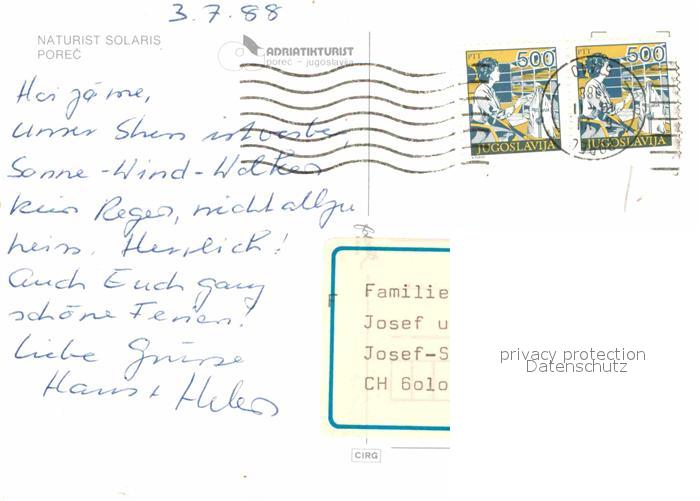 3.7.88
NATURIST SOLARIS
POREČ
ADRIATIKTURIST
poreč - jugoslavija
PTT 500 PTT 500
JUGOSLAVIJA JUGOSLAVIJA
Hoi zäme,
Unser Stress ist vorbei,
Sonne - Wind - Wolken
kein Regen, nicht allzu
heiss. Herrlich!
Auch Euch ganz
schöne Ferien!
Liebe Grüsse
Hans + Helen
F
Familie
Josef u
Josef-S
CH 6olo
privacy protection
Datenschutz
CIRG